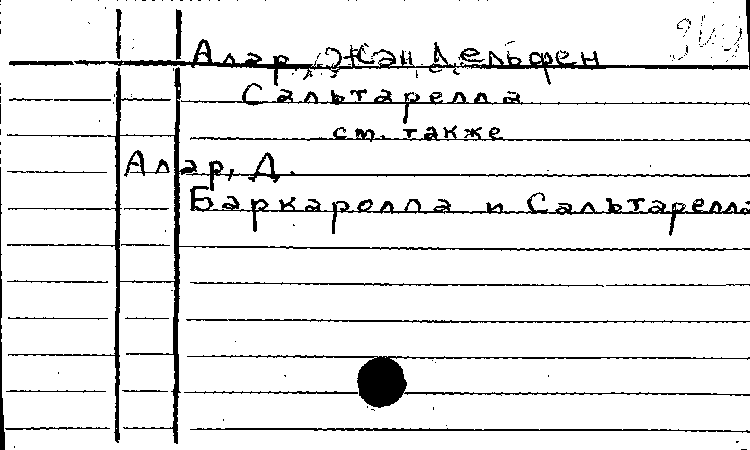 Алар, Жан Дельфен
Сальтарелла
см. также
Алар, Д.
Баркаролла и Сальтарелла